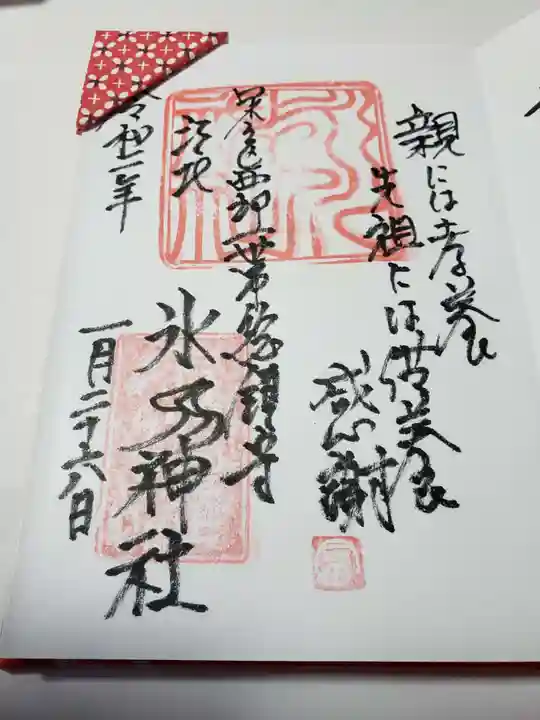 親には孝養
先祖には供養
感謝
足立西部一帯総鎮守
氷乃神社
令和二年
一月二十六日